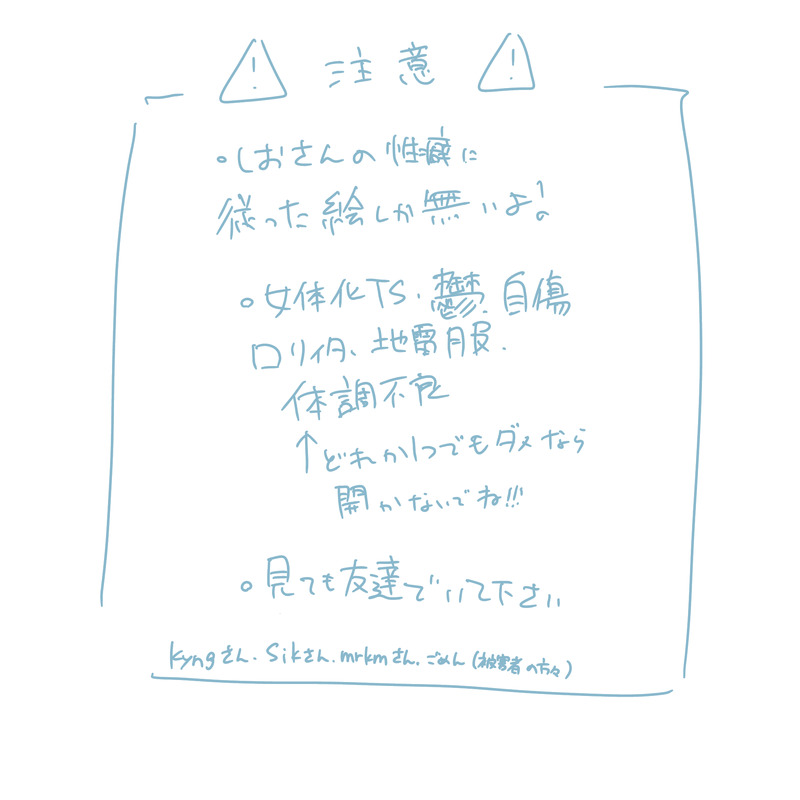 ⚠ 注意 ⚠
・しおさんの性癖に
従った絵しか無いよ!。
・女体化TS・鬱.自傷
ロリィタ、地雷服.
体調不良
↑どれか1つでもダメなら
開かないでね!!!
・見ても友達でいて下さい
kyngさん.Sikさん.mrkmさん.ごめん(被害者の方々)